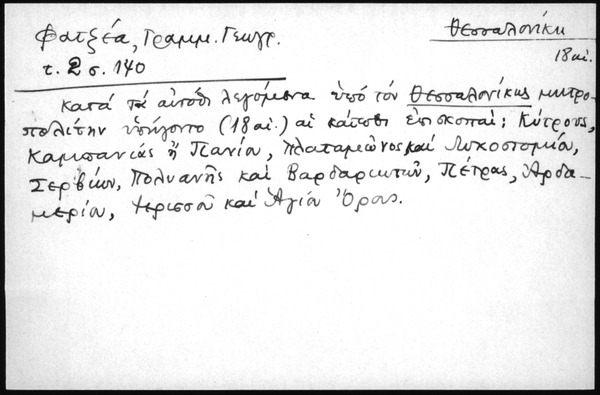 Φατζέα, Γραμμ. Γεωγρ.
Θεσσαλονίκη
τ. 2 σ. 140
18 αἰ.
κατά τά αὐτόθι λεγόμενα ὑπό τόν Θεσσαλονίκης μητρο-
πολίτην ὑπήγοντο (18 αἰ.) αἱ κάτωθι ἐπισκοπαί: Κύτρους,
Καμπανίας ἤ Πανία, Πλαταμῶνος καί Λυκοστομίου,
Σερβίων, Πολυανῆς καί Βαρδαριωτῶν, Πέτρας, Ἀρδα-
μερίου, Ἱερισσοῦ καί Ἁγίου Ὄρους.